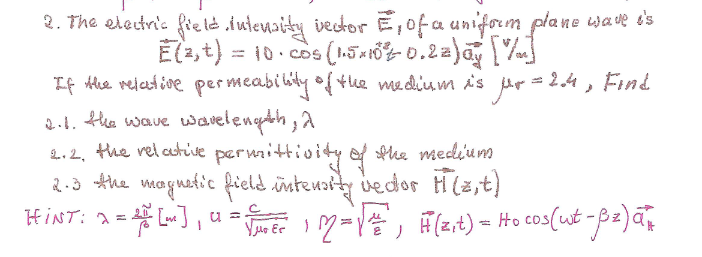 2. The electric field intensity vector E⃗, of a uniform plane wave is
E⃗(z,t) = 10·cos(1.5×10⁸t-0.2z)a⃗y [V/m]
If the relative permeability of the medium is μr = 2.4, Find
2.1. the wave wavelength, λ
2.2. the relative permittivity of the medium
2.3 the magnetic field intensity vector H⃗(z,t)
HINT: λ = 2π/β [m], u = c/√(μr εr), η = √(μ/ε), H⃗(z,t) = Ho cos(ωt-βz) a⃗H